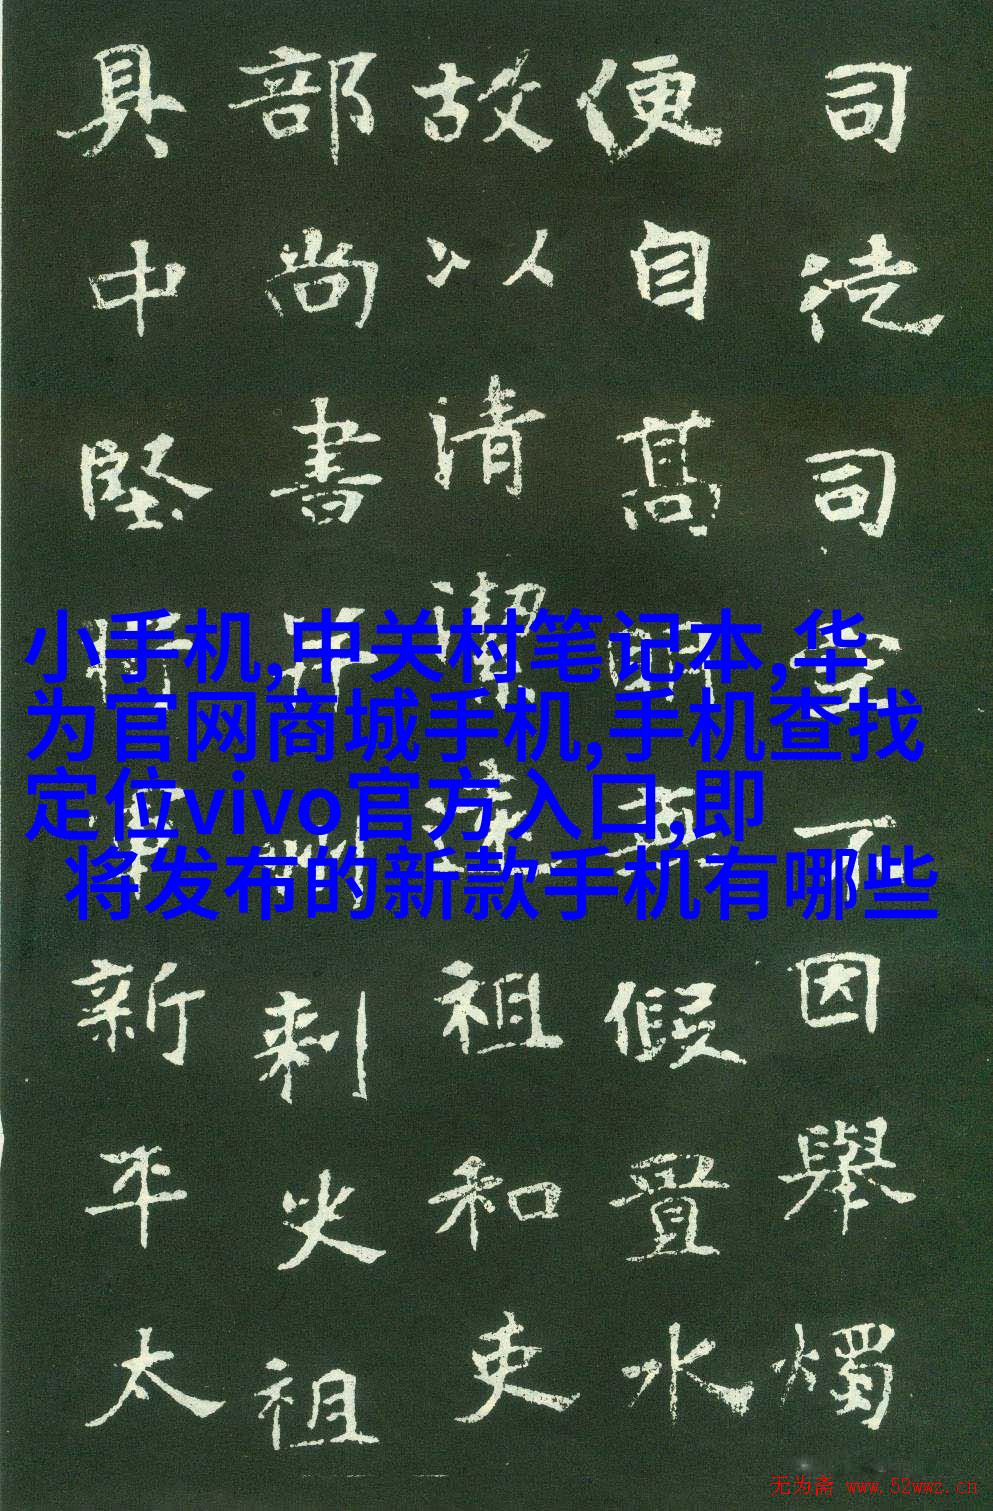 司徒司因舉燭
便自高假置水
故以清潔祖和吏
部尚書刺史祖
具中堅新平太
小手机,中关村笔记本,华
为官网商城手机,手机查找
定位vivo官方入口,即
将发布的新款手机有哪些
无为斋 www.52wwz.cn